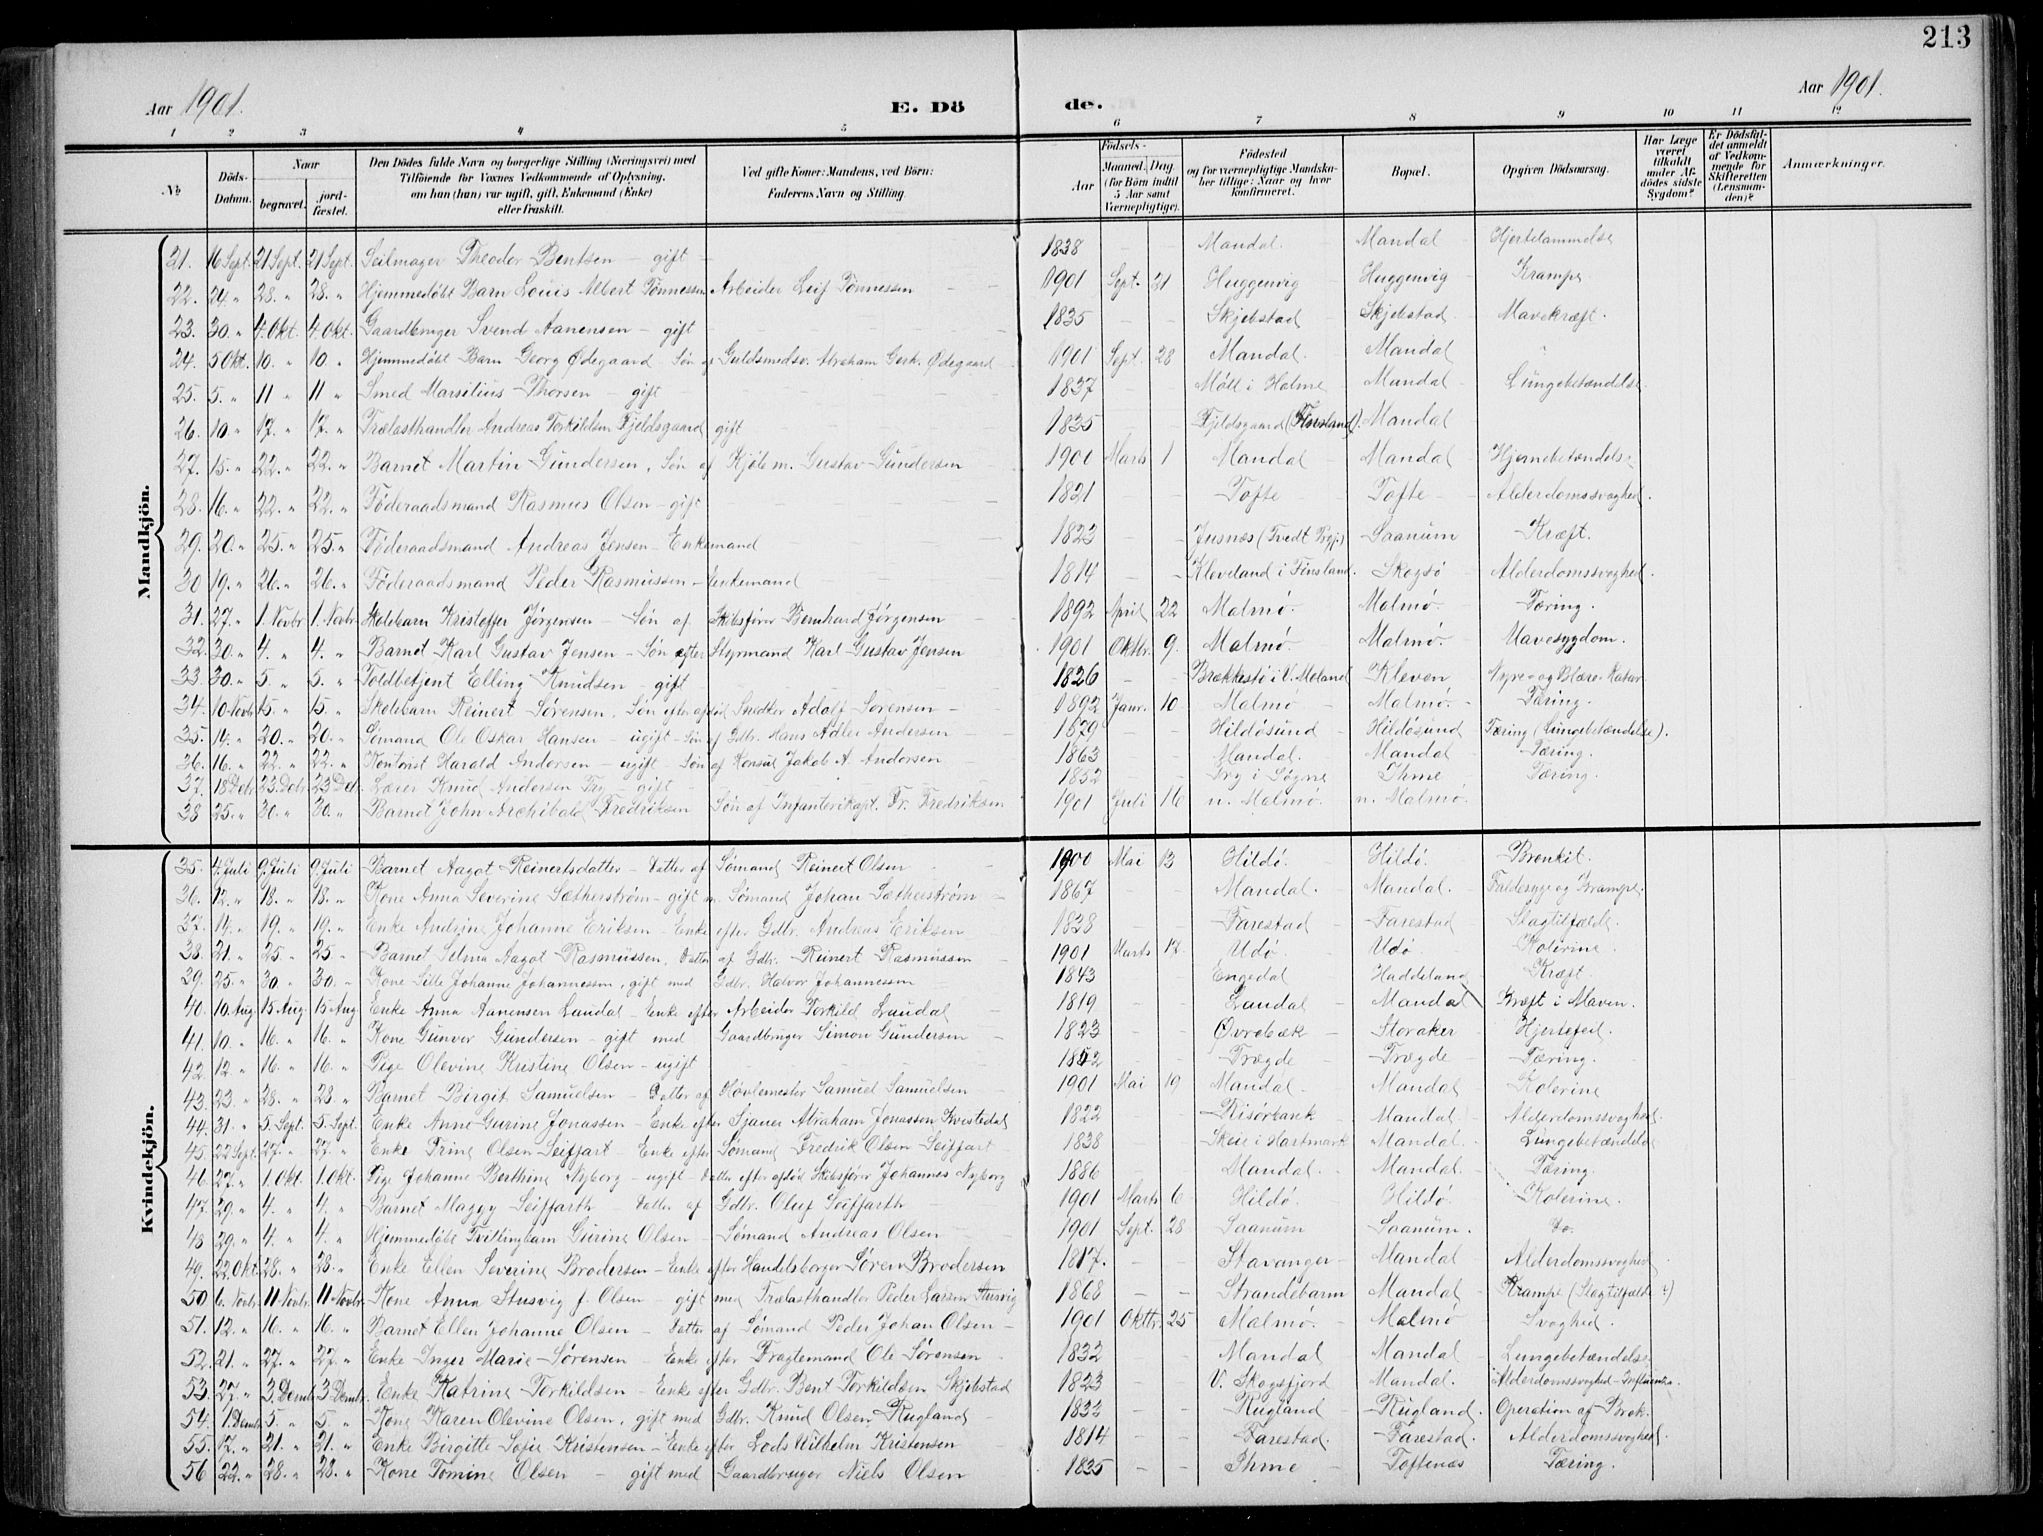 213
Aar 1901. E. Dö de. Aar 1901.
1 2 3 4 5 6 7 8 9 10 11 12
No Döds-Datum. Naar begravet. jord-fæstet. Den Dödes fulde Navn og borgerlige Stilling (Næringsvei) med Tilföiende for Voxnes Vedkommende af Oplysning, om han (hun) var ugift, gift, Enkemand (Enke) eller fraskilt. Ved gifte Koner: Mandens, ved Börn: Faderens Navn og Stilling. Aar Födsels- Maaned. Dag. (for Börn indtil 5 Aar samt Værnepligtige). Födested og for værnepligtige Mandskaber tillige: Naar og hvor konfirmeret. Bopæl. Opgiven Dödsaarsag. Har Læge været tilkaldt under Afdödes sidste Sygdom? Er Dödsfaldet anmeldt af Vedkommende for Skifteretten (Lensmanden)? Anmærkninger.
Mandkjön.
21. 16 Sept. 21 Sept. 21 Sept. Seilmager Theodor Bentsen – gift – 1838 – – Mandal. Mandal Hjertelammelse
22. 24 " 28. " 28. " Hjemmedøbt Barn Louis Albert Tønnessen Arbeider Leif Tønnessen 1901 Sept. 21 Huggenvig Huggenvig Krampe
23. 30. " 4. Okt. 4. Okt. Gaardbruger Svend Aanensen – gift 1835 – – Skjebstad Skjebstad Mavekræft.
24. 5 Okt. 10. " 10 " Hjemmedøbt Barn Georg Ødegaard – Søn af Guldsmedsv. Abraham Gerh. Ødegaard 1901 Sept. 28 Mandal. Mandal "
25. 5. " 11 " 11 " Smed Marsilius Thorsen – gift 1837 Møll i Holme Mandal Lungebetændelse
26. 10 " 17. " 17. " Trælasthandler Andreas Torkildsen Fjeldsgaard gift 1835 Fjeldsgaard (Finsland). Mandal
27. 15. " 22. " 22. " Barnet Martin Gundersen, Søn af Hjólem. Gustav Gundersen 1900 Marts 1 Mandal Mandal Hjernebetændelse
28. 16. " 22. " 22. " Føderaadsmand Rasmus Olsen – gift 1821 – – Tofte – Tofte – Alderdomssvaghed.
29. 20. " 25. " 25. " Føderaadsmand Andreas Jensen – Enkemand 1823 – – Jusnæs (Tvedt Prgj.) Saanum Kræft.
30 19. " 26. " 26. " Føderaadsmand Peder Rasmussen – Enkemand 1814 – – Kleveland i Finsland. Skogsø Alderdomssvaghed.
31. 27. " 1. Novbr 1. Novbr. Skolebarn Kristoffer Jørgensen – Søn af Skibsfører Bernhard Jørgensen 1892 April 22 Malmø. Malmø. Tæring.
32. 30. " 4. " 4. " Barnet Karl Gustav Jensen – Søn efter Styrmand Karl Gustav Jensen 1901 Oktbr. 9. Malmø. Malmø. Mavesygdom.
33. 30. " 5. " 5. " Toldbetjent Elling Knudsen – gift 1826 – – Brækkestø i V. Moland Kleven Nyre- og Blære-Katar
34. 10 Novbr 15. " 15. " Skolebarn Reinert Sørensen, Søn efter afdød Snedker Adolf Sørensen – 1892 Janr. 10 Malmø Malmø. Tæring.
35. 14. " 20. " 20. " Sømand Ole Oskar Hansen – ugift Søn af Gdbr. Hans Adler Andersen 1879 – – Hildøsund Hildøsund Tæring (Lungebetændelse).
36. 16. " 22. " 22. " Kontorist Harald Andorsen – ugift Søn af Konsul Jakob A. Andorsen 1863 Mandal. Mandal Tæring.
37. 18 Debr 23. Debr 23 Debr. Lærer Knud Andersen Try gift 1852 Try i Søgne Ihme Tæring.
38 25. " 30. " 30. " Barnet John Archibald Fredriksen Søn af Infanterikapt. Fr. Fredriksen 1901 Juli 16 n. Malmø. n. Malmø.
Kvindekjön.
35. 4. Juli 9. Juli 9. Juli Barnet Aagot Reinertsdatter – Datter af Sømand Reinert Olsen 1900 Mai 13 Hildø. Hildø. Bronkit.
36. 12. " 18. " 18. " Kone Anna Severine Sætherstrøm – gift m. Sømand Johan Sætherstrøm – 1867 – – Mandal. Mandal. Faldesyge og Krampe.
37. 14. " 19. " 19. " Enke Andrine Johanne Eriksen – Enke efter Gdbr. Andreas Eriksen 1828 Farestad Farestad Slagtilfælde.
38. 21. " 25. " 25 " Barnet Selma Aagot Rasmussen, Datter af Gdbr. Reinert Rasmussen 1901 Marts 17. Udø. Udø Kolerine.
39. 25. " 30. " 30. " Kone Sille Johanne Johannessen, gift med Gdbr. Halvor Johannessen 1843 – – Engedal Haddeland Kræft.
40. 10. Aug 15. Aug. 15 Aug. Enke Anna Aanensen Laudal – Enke efter Arbeider Torkild Laudal 1819 Laudal Mandal Kræft i Maven.
41. 10. " 16. " 16. " Kone Gunvor Gundersen – gift med Gaardbruger Simon Gundersen 1823 Øvrebæk Storaker Hjertefeil.
42. 12 " 16. " 16. " Pige Olevine Kristine Olsen – ugift 1852 – – Trægde Trægde Tæring.
43. 23. " 28. " 28. " Barnet Birgit Samuelsen – Datter af Høvlemester Samuel Samuelsen 1901 Mai 19 Mandal Mandal Kolerine
44. 31. " 5. Sept. 5. Sept. Enke Anne Gurine Jonassen – Enke efter Sjauer Abraham Jonassen Kvistedal 1822 Risørbank Mandal – Alderdomssvaghed.
45. 22 Sept. 27. " 27. " Enke Trine Olsen Seiffart – Enke efter Sømand Fredrik Olsen Seiffart 1838 Skeie i Hartmark Mandal. Lungebetændelse
46 27. " 1. Okt. 1. Okt. Pige Johanne Berthine Nyborg – ugift – Datter efter afdød Skibsfører Johannes Nyborg 1886 Mandal. Mandal. Tæring.
47. 29. " 4. " 4. " Barnet Maggy Seiffarth – Datter af Gdbr. Oluf Seiffarth 1901 Marts 6. Hildø. Hildø. Kolerine.
48 29. " 4. " 4. " Hjemmedøbt Tvillingbarn Gurine Olsen – Sømand Andreas Olsen 1901 Sept. 28 Saanum Saanum. do.
49. 22 Okt. 28. " 28. " Enke Ellen Severine Brodersen – Enke efter Handelsborger Søren Brodersen 1817. – – Stavanger Mandal Alderdomssvaghed
50 6. Novbr 11 Novbr. 11 Novbr. Kone Anna Stusvig f. Olsen – gift med Trælasthandler Peder Larsen Stusvig 1868 – – Strandebarm Mandal – Krampe (Slagtilfælde ?)
51. 12. " 16. " 16. " Barnet Ellen Johanne Olsen – Datter af Sømand Peder Johan Olsen – 1901 Oktbr. 25 Malmø. Malmø Svaghed.
52. 21. " 27. " 27. " Enke Inger Marie Sørensen – Enke efter Fragtemand Ole Sørensen 1832 Mandal Mandal Lungebetændelse
53. 27. " 3. Dembr 3. Dembr. Enke Katrine Torkildsen – Enke efter Gdbr. Bent Torkildsen Skjebstad 1823 V. Skogsfjord Mandal. Alderdomssvaghed – Influenza.
54. 1 Dembr. 5. " 5. " Kone Karen Olevine Olsen, gift med Gdbr. Knud Olsen Rugland 1832 – – Rugland Rugland. Operation af Brok.
55. 17. " 21. " 21. " Enke Birgitte Sofie Kristensen – Enke efter Lods Wilhelm Kristensen 1814 – – Farestad. Farestad. Alderdomssvaghed.
56 22. " 28. " 28. " Kone Tomine Olsen – gift med Gaardbruger Niels Olsen 1835 – – Ihme Toftenæs Tæring.